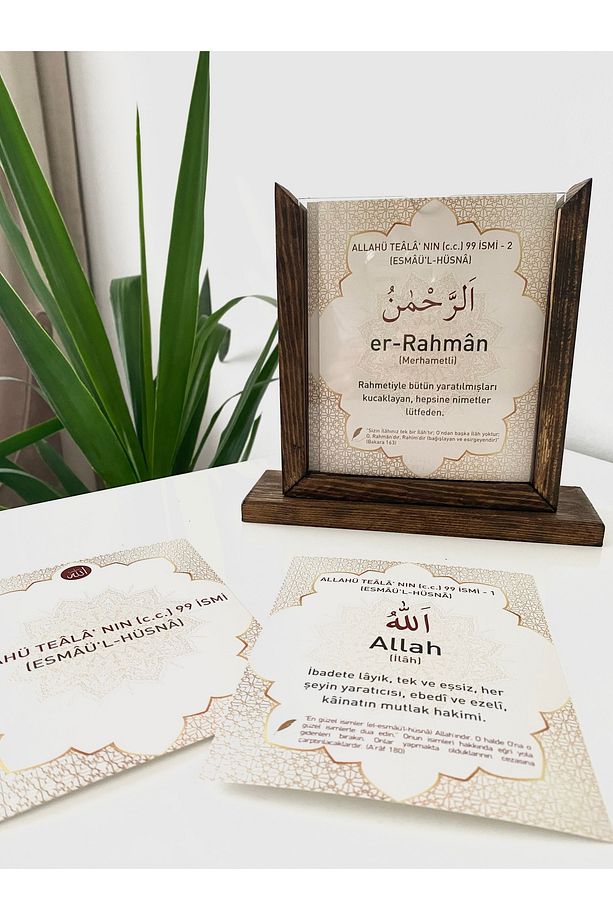 ALLAHÜ TEÂLÂ' NIN (c.c.) 99 İSMİ - 2
(ESMÂÜ'L-HÜSNÂ)
اَلرَّحْمٰنُ
er-Rahmân
(Merhametli)
Rahmetiyle bütün yaratılmışları
kucaklayan, hepsine nimetler
lütfeden.
"Sizin ilâhınız tek bir ilâh'tır; O'ndan başka ilâh yoktur;
O, Rahmân'dır, Rahîm'dir (bağışlayan ve esirgeyendir)"
(Bakara 163)
الله
AHÜ TEÂLÂ' NIN (c.c.) 99 İSMİ
(ESMÂÜ'L-HÜSNÂ)
ALLAHÜ TEÂLÂ' NIN (c.c.) 99 İSMİ - 1
(ESMÂÜ'L-HÜSNÂ)
اَللّٰهُ
Allah
(İlâh)
İbadete lâyık, tek ve eşsiz, her
şeyin yaratıcısı, ebedî ve ezelî,
kâinatın mutlak hakimi.
"En güzel isimler (el-esmâü'l-hüsnâ) Allah'ındır. O halde O'na o
güzel isimlerle dua edin." Onun isimleri hakkında eğri yola
gidenleri bırakın. Onlar yapmakta olduklarının cezasına
çarptırılacaklardır. (A'râf 180)